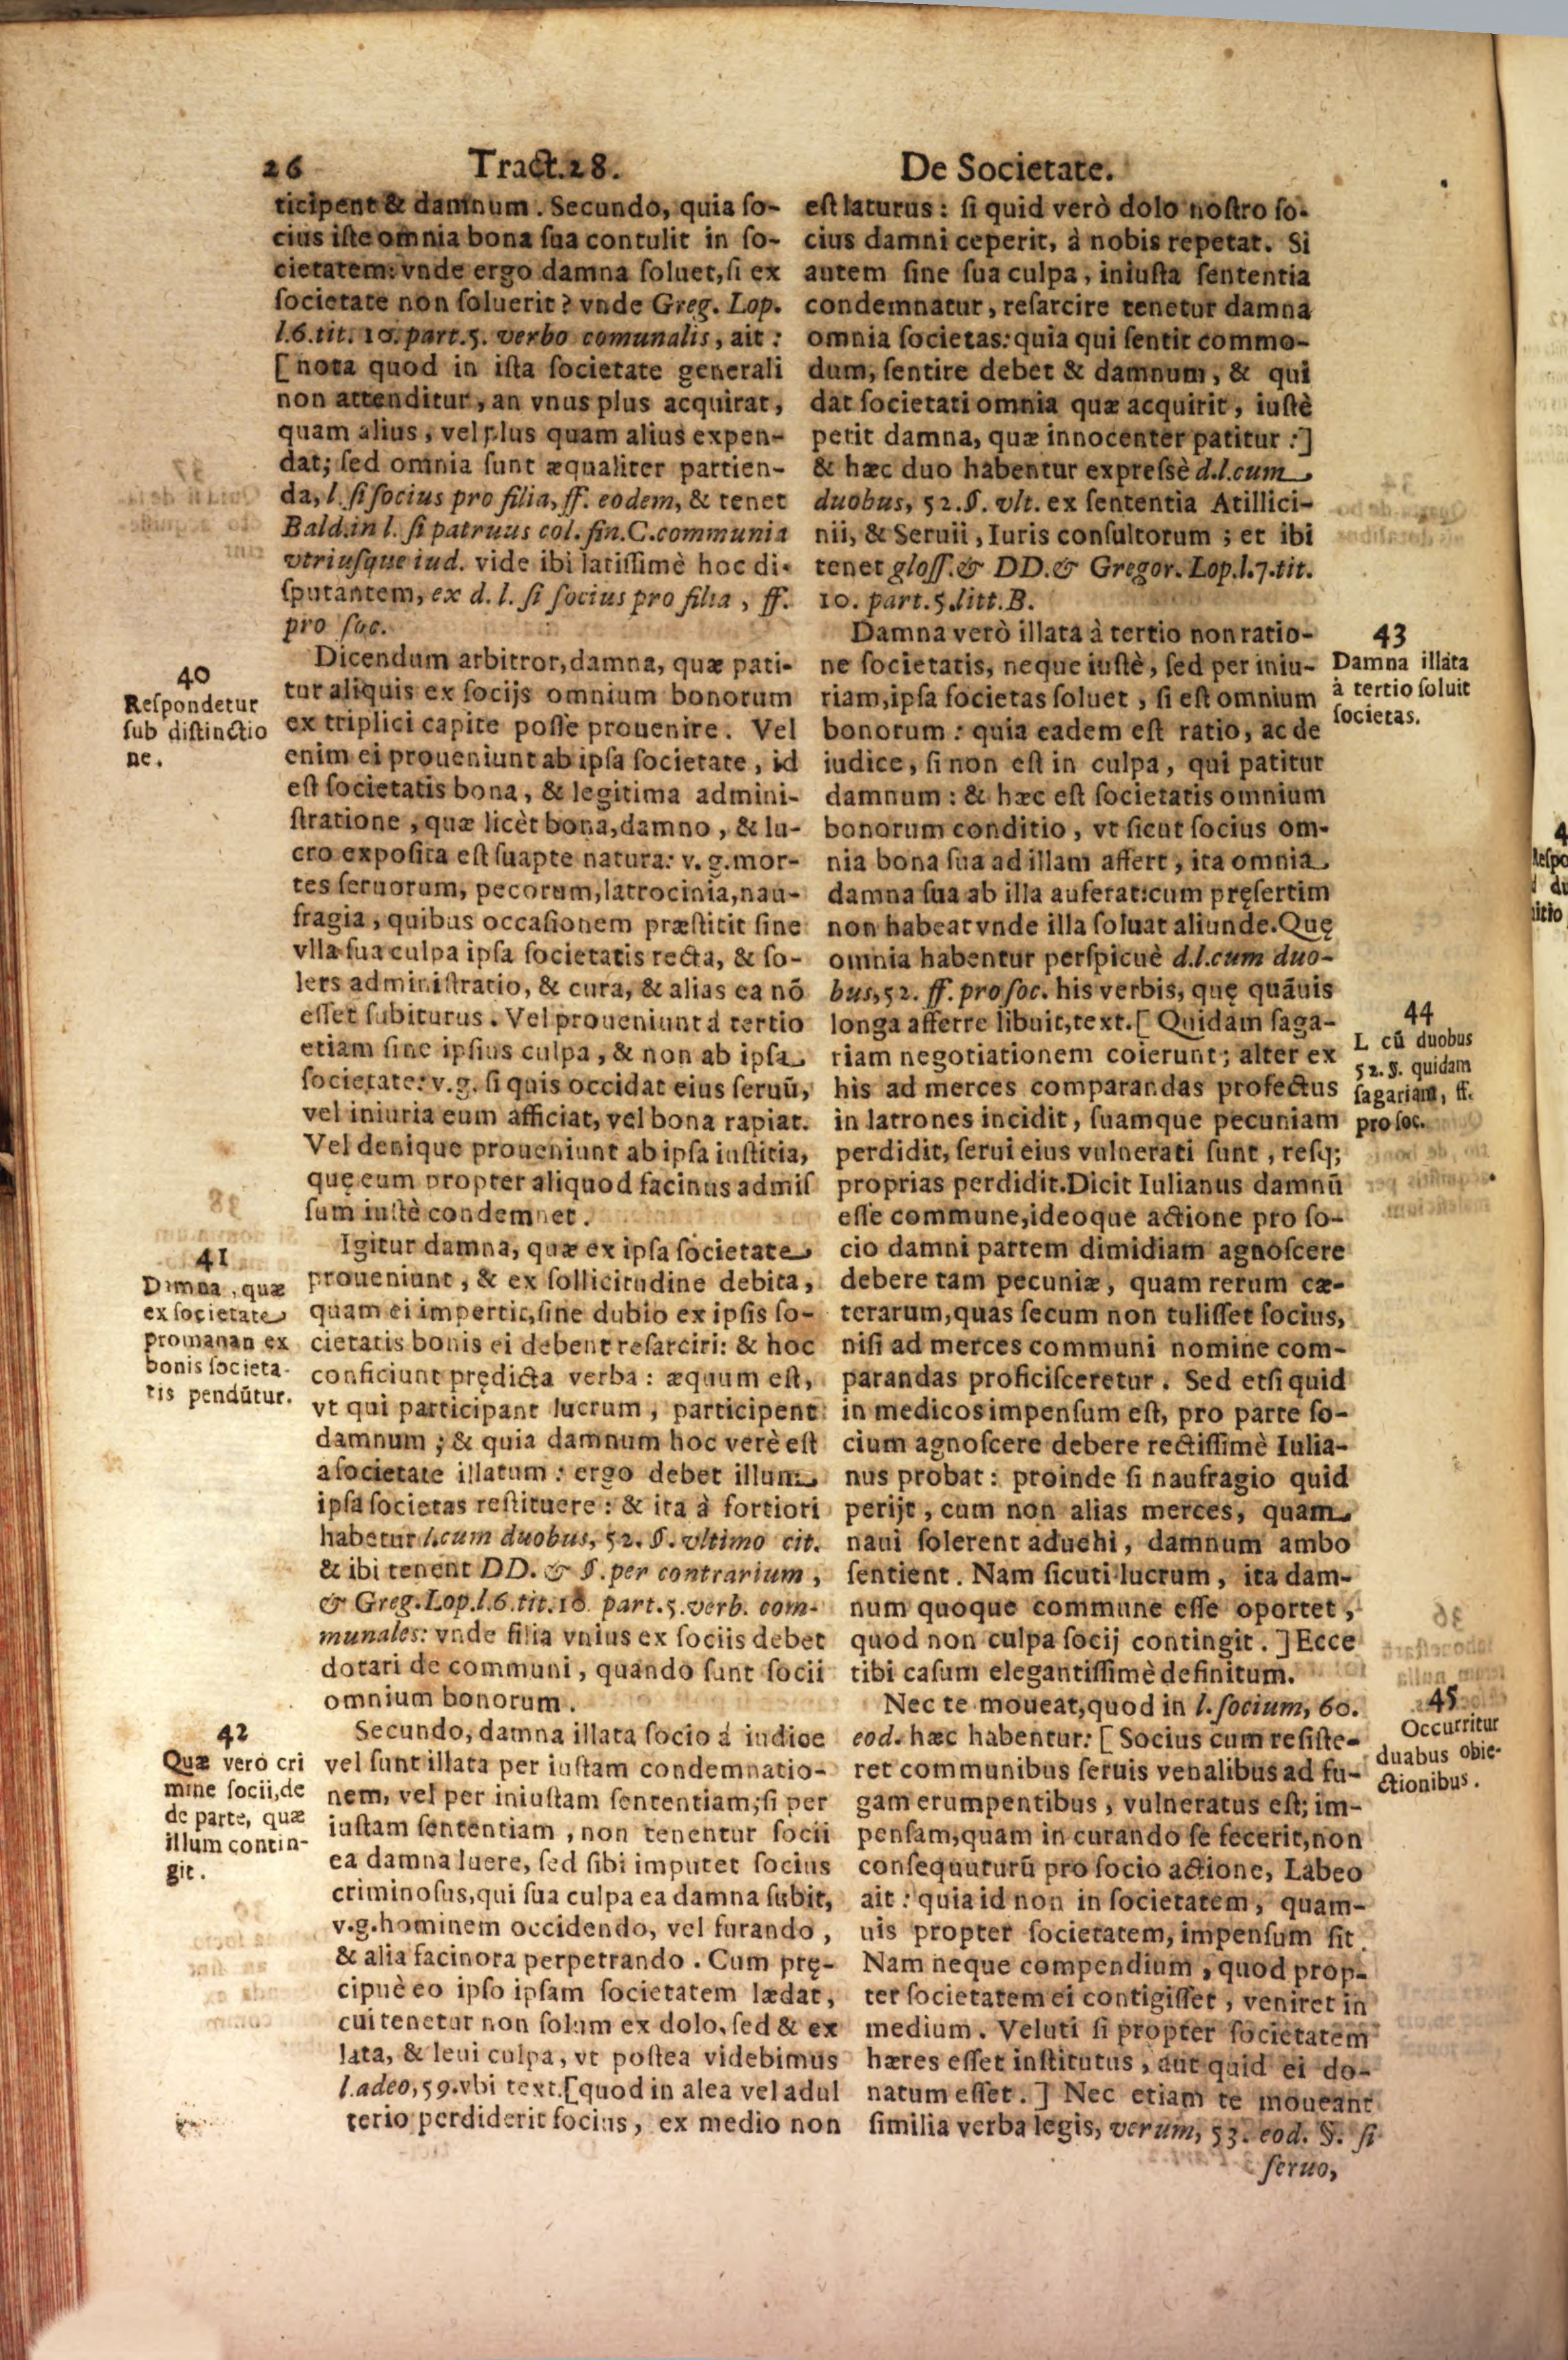 26 Tract.28. De Societate.
ticipent & damnum. Secundo, quia ſo-
cius iſte omnia bona ſua contulit in ſo-
cietatem: vnde ergo damna ſoluet, ſi ex
ſocietate non ſoluerit? vnde Greg. Lop.
l.6.tit. 10. part.5. verbo comunalis, ait:
[nota quod in iſta ſocietate generali
non attenditur, an vnus plus acquirat,
quam alius, vel plus quam alius expen-
dat; ſed omnia ſunt æqualiter partien-
da, l. ſi ſocius pro filia, ff. eodem, & tenet
Bald.in l. ſi patruus col. fin.C.communia
vtriuſque iud. vide ibi latiſſimè hoc di-
ſputantem, ex d. l. ſi ſocius pro filia, ff.
pro ſoc.
40
Reſpondetur
ſub diſtinctio
ne.
Dicendum arbitror, damna, quæ pati-
tur aliquis ex ſocijs omnium bonorum
ex triplici capite poſſe prouenire. Vel
enim ei proueniunt ab ipſa ſocietate, id
eſt ſocietatis bona, & legitima admini-
ſtratione, quæ licèt bona, damno, & lu-
cro expoſita eſt ſuapte natura: v.g.mor-
tes ſeruorum, pecorum, latrocinia, nau-
fragia, quibus occaſionem præſtitit ſine
vlla ſua culpa ipſa ſocietatis recta, & ſo-
lers adminiſtratio, & cura, & alias ea nõ
eſſet ſubiturus. Vel proueniunt á tertio
etiam ſine ipſius culpa, & non ab ipſa
ſocietate: v.g. ſi quis occidat eius ſeruũ,
vel iniuria eum afficiat, vel bona rapiat.
Vel denique proueniunt ab ipſa iuſtitia,
quę eum propter aliquod facinus admiſ
ſum iuſtè condemnet.
41
Damna, quæ
ex ſocietate
promanan ex
bonis ſocieta-
tis pendũtur.
Igitur damna, quæ ex ipſa ſocietate
proueniunt, & ex ſollicitudine debita,
quam ei impertit, ſine dubio ex ipſis ſo-
cietatis bonis ei debent reſarciri: & hoc
conficiunt prędicta verba: æquum eſt,
vt qui participant lucrum, participent
damnum; & quia damnum hoc verè eſt
a ſocietate illatum: ergo debet illum
ipſa ſocietas reſtituere: & ita à fortiori
habetur l.cum duobus, 52. §. vltimo cit.
& ibi tenent DD. & §. per contrarium,
& Greg.Lop.l.6.tit.10. part.5.verb. com-
munales: vnde filia vnius ex ſociis debet
dotari de communi, quando ſunt ſocii
omnium bonorum.
42
Quæ verò cri
mine ſocii, de
de parte, quæ
illum contin-
git.
Secundo, damna illata ſocio á iudice
vel ſunt illata per iuſtam condemnatio-
nem, vel per iniuſtam ſententiam; ſi per
iuſtam ſententiam, non tenentur ſocii
ea damna luere, ſed ſibi imputet ſocius
criminoſus, qui ſua culpa ea damna ſubit,
v.g.hominem occidendo, vel furando,
& alia facinora perpetrando. Cum prę-
cipuè eo ipſo ipſam ſocietatem lædat,
cui tenetur non ſolum ex dolo, ſed & ex
lata, & leui culpa, vt poſtea videbimus
l.adeo, 59.vbi text.[quod in alea vel adul
terio perdiderit ſocius, ex medio non
eſt laturus: ſi quid verò dolo noſtro ſo-
cius damni ceperit, à nobis repetat. Si
autem ſine ſua culpa, iniuſta ſententia
condemnatur, reſarcire tenetur damna
omnia ſocietas: quia qui ſentit commo-
dum, ſentire debet & damnum, & qui
dat ſocietati omnia quæ acquirit, iuſtè
petit damna, quæ innocenter patitur:]
& hæc duo habentur expreſsè d.l.cum
duobus, 52.§. vlt. ex ſententia Atillici-
nii, & Seruii, Iuris conſultorum; et ibi
tenet gloſſ.& DD.& Gregor. Lop.l.7.tit.
10. part.5.litt.B.
43
Damna illata
à tertio ſoluit
ſocietas.
Damna verò illata à tertio non ratio-
ne ſocietatis, neque iuſtè, ſed per iniu-
riam, ipſa ſocietas ſoluet, ſi eſt omnium
bonorum: quia eadem eſt ratio, ac de
iudice, ſi non eſt in culpa, qui patitur
damnum: & hæc eſt ſocietatis omnium
bonorum conditio, vt ſicut ſocius om-
nia bona ſua ad illam affert, ita omnia
damna ſua ab illa auferat: cum pręſertim
non habeat vnde illa ſoluat aliunde. Quę
omnia habentur perſpicuè d.l.cum duo-
bus, 52. ff. pro ſoc. his verbis, quę quãuis
longa afferre libuit, text.[Quidam ſaga-
riam negotiationem coierunt; alter ex
his ad merces comparandas profectus
in latrones incidit, ſuamque pecuniam
perdidit, ſerui eius vulnerati ſunt, reſq;
proprias perdidit. Dicit Iulianus damnũ
eſſe commune, ideoque actione pro ſo-
cio damni partem dimidiam agnoſcere
debere tam pecuniæ, quam rerum cæ-
terarum, quas ſecum non tuliſſet ſocius,
niſi ad merces communi nomine com-
parandas proficiſceretur. Sed etſi quid
in medicos impenſum eſt, pro parte ſo-
cium agnoſcere debere rectiſſimè Iulia-
nus probat: proinde ſi naufragio quid
perijt, cum non alias merces, quam
naui ſolerent aduehi, damnum ambo
ſentient. Nam ſicuti lucrum, ita dam-
num quoque commune eſſe oportet,
quod non culpa ſocij contingit.] Ecce
tibi caſum elegantiſſimè definitum.
44
L cũ duobus
52.§. quidam
ſagariam, ff.
pro ſoc.
45
Occurritur
duabus obie-
ctionibus.
Nec te moueat, quod in l. ſocium, 60.
eod. hæc habentur: [Socius cum reſiſte-
ret communibus ſeruis venalibus ad fu-
gam erumpentibus, vulneratus eſt; im-
penſam, quam in curando ſe fecerit, non
conſequuturũ pro ſocio actione, Labeo
ait: quia id non in ſocietatem, quam-
uis propter ſocietatem, impenſum ſit.
Nam neque compendium, quod prop-
ter ſocietatem ei contigiſſet, veniret in
medium. Veluti ſi propter ſocietatem
hæres eſſet inſtitutus, aut quid ei do-
natum eſſet.] Nec etiam te moueant
ſimilia verba legis, verum, 53. eod. §. ſi
ſeruo,